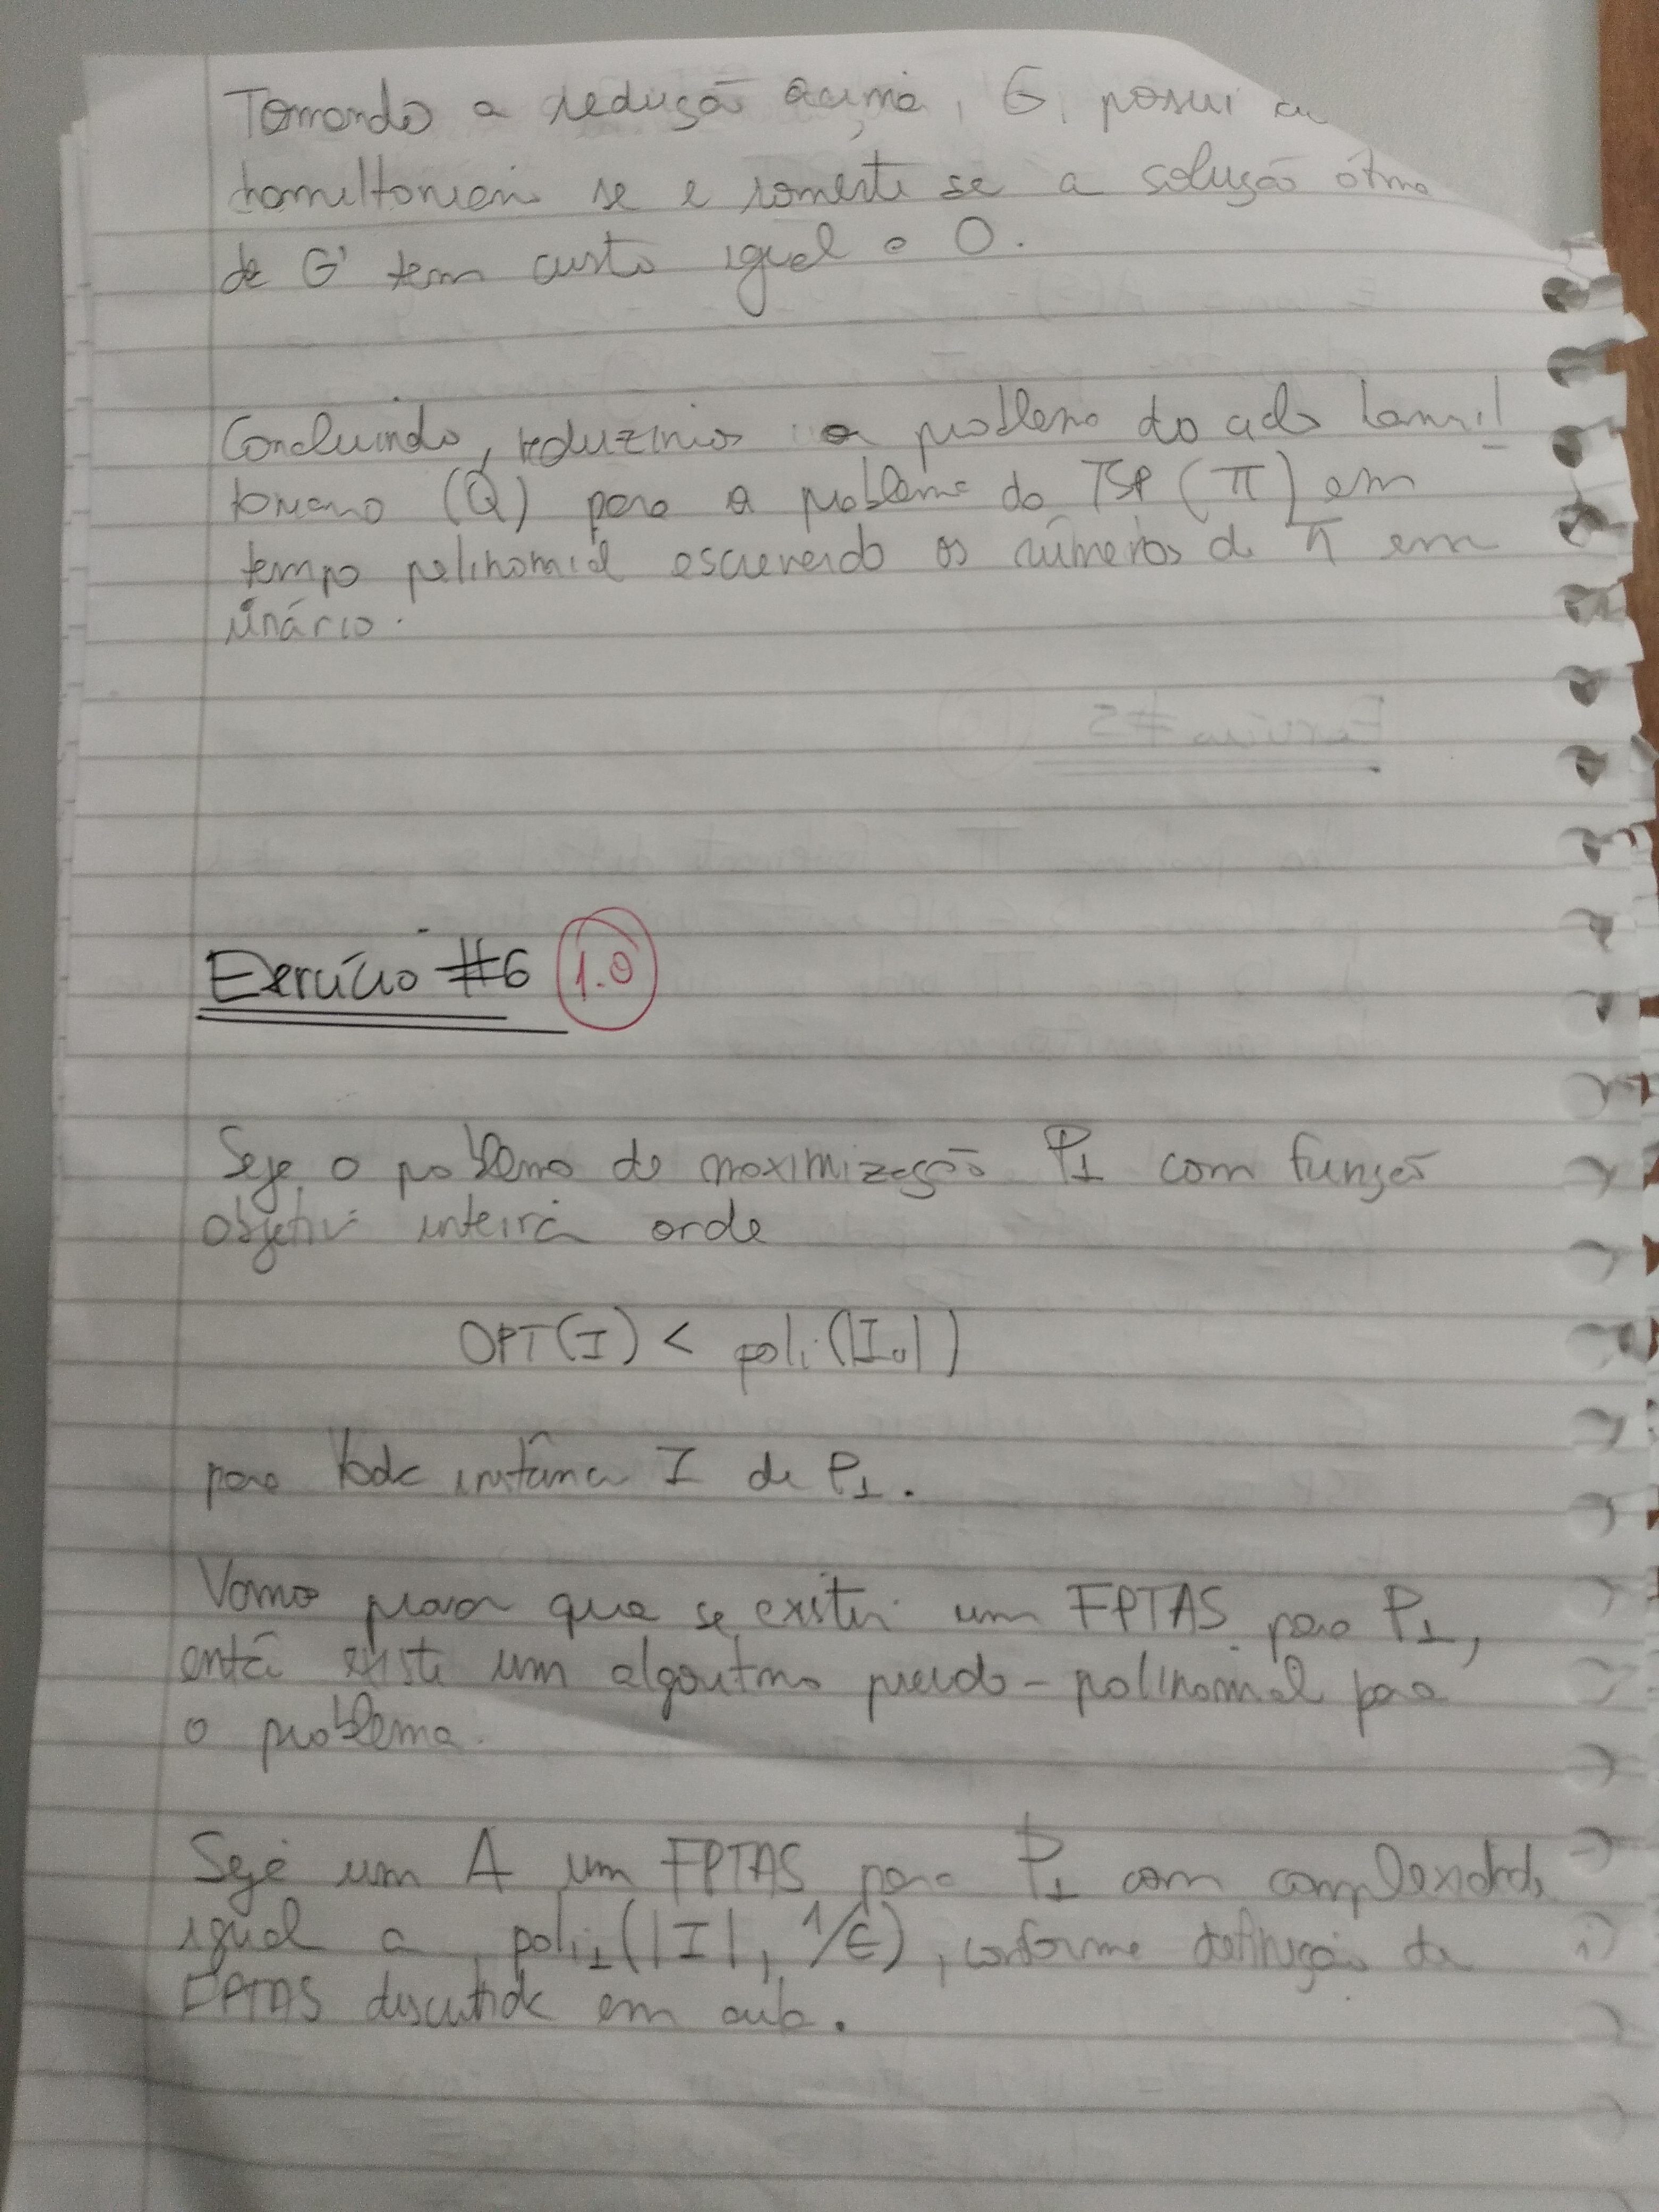 Tomando a redução acima, G, possui
hamiltoniano se e somente se a solução ótima
de G' tem custo igual a 0.
Concluindo, reduzimos o problema do ciclo hamil
toniano (Q) para o problema do TSP (π) em
tempo polinomial escrevendo os números de π em
unário.
Exercício #6 1.0
Seja o problema de maximização P1 com função
objetiva inteira onde
OPT(I) < poli(|Iu|)
para toda instância I de P1.
Vamos provar que se existir um FPTAS para P1,
então existe um algoritmo pseudo-polinomial para
o problema.
Seja um A um FPTAS para P1 com complexidade
igual a poli1(|I|, 1/ε), conforme definição de
FPTAS discutida em aula.